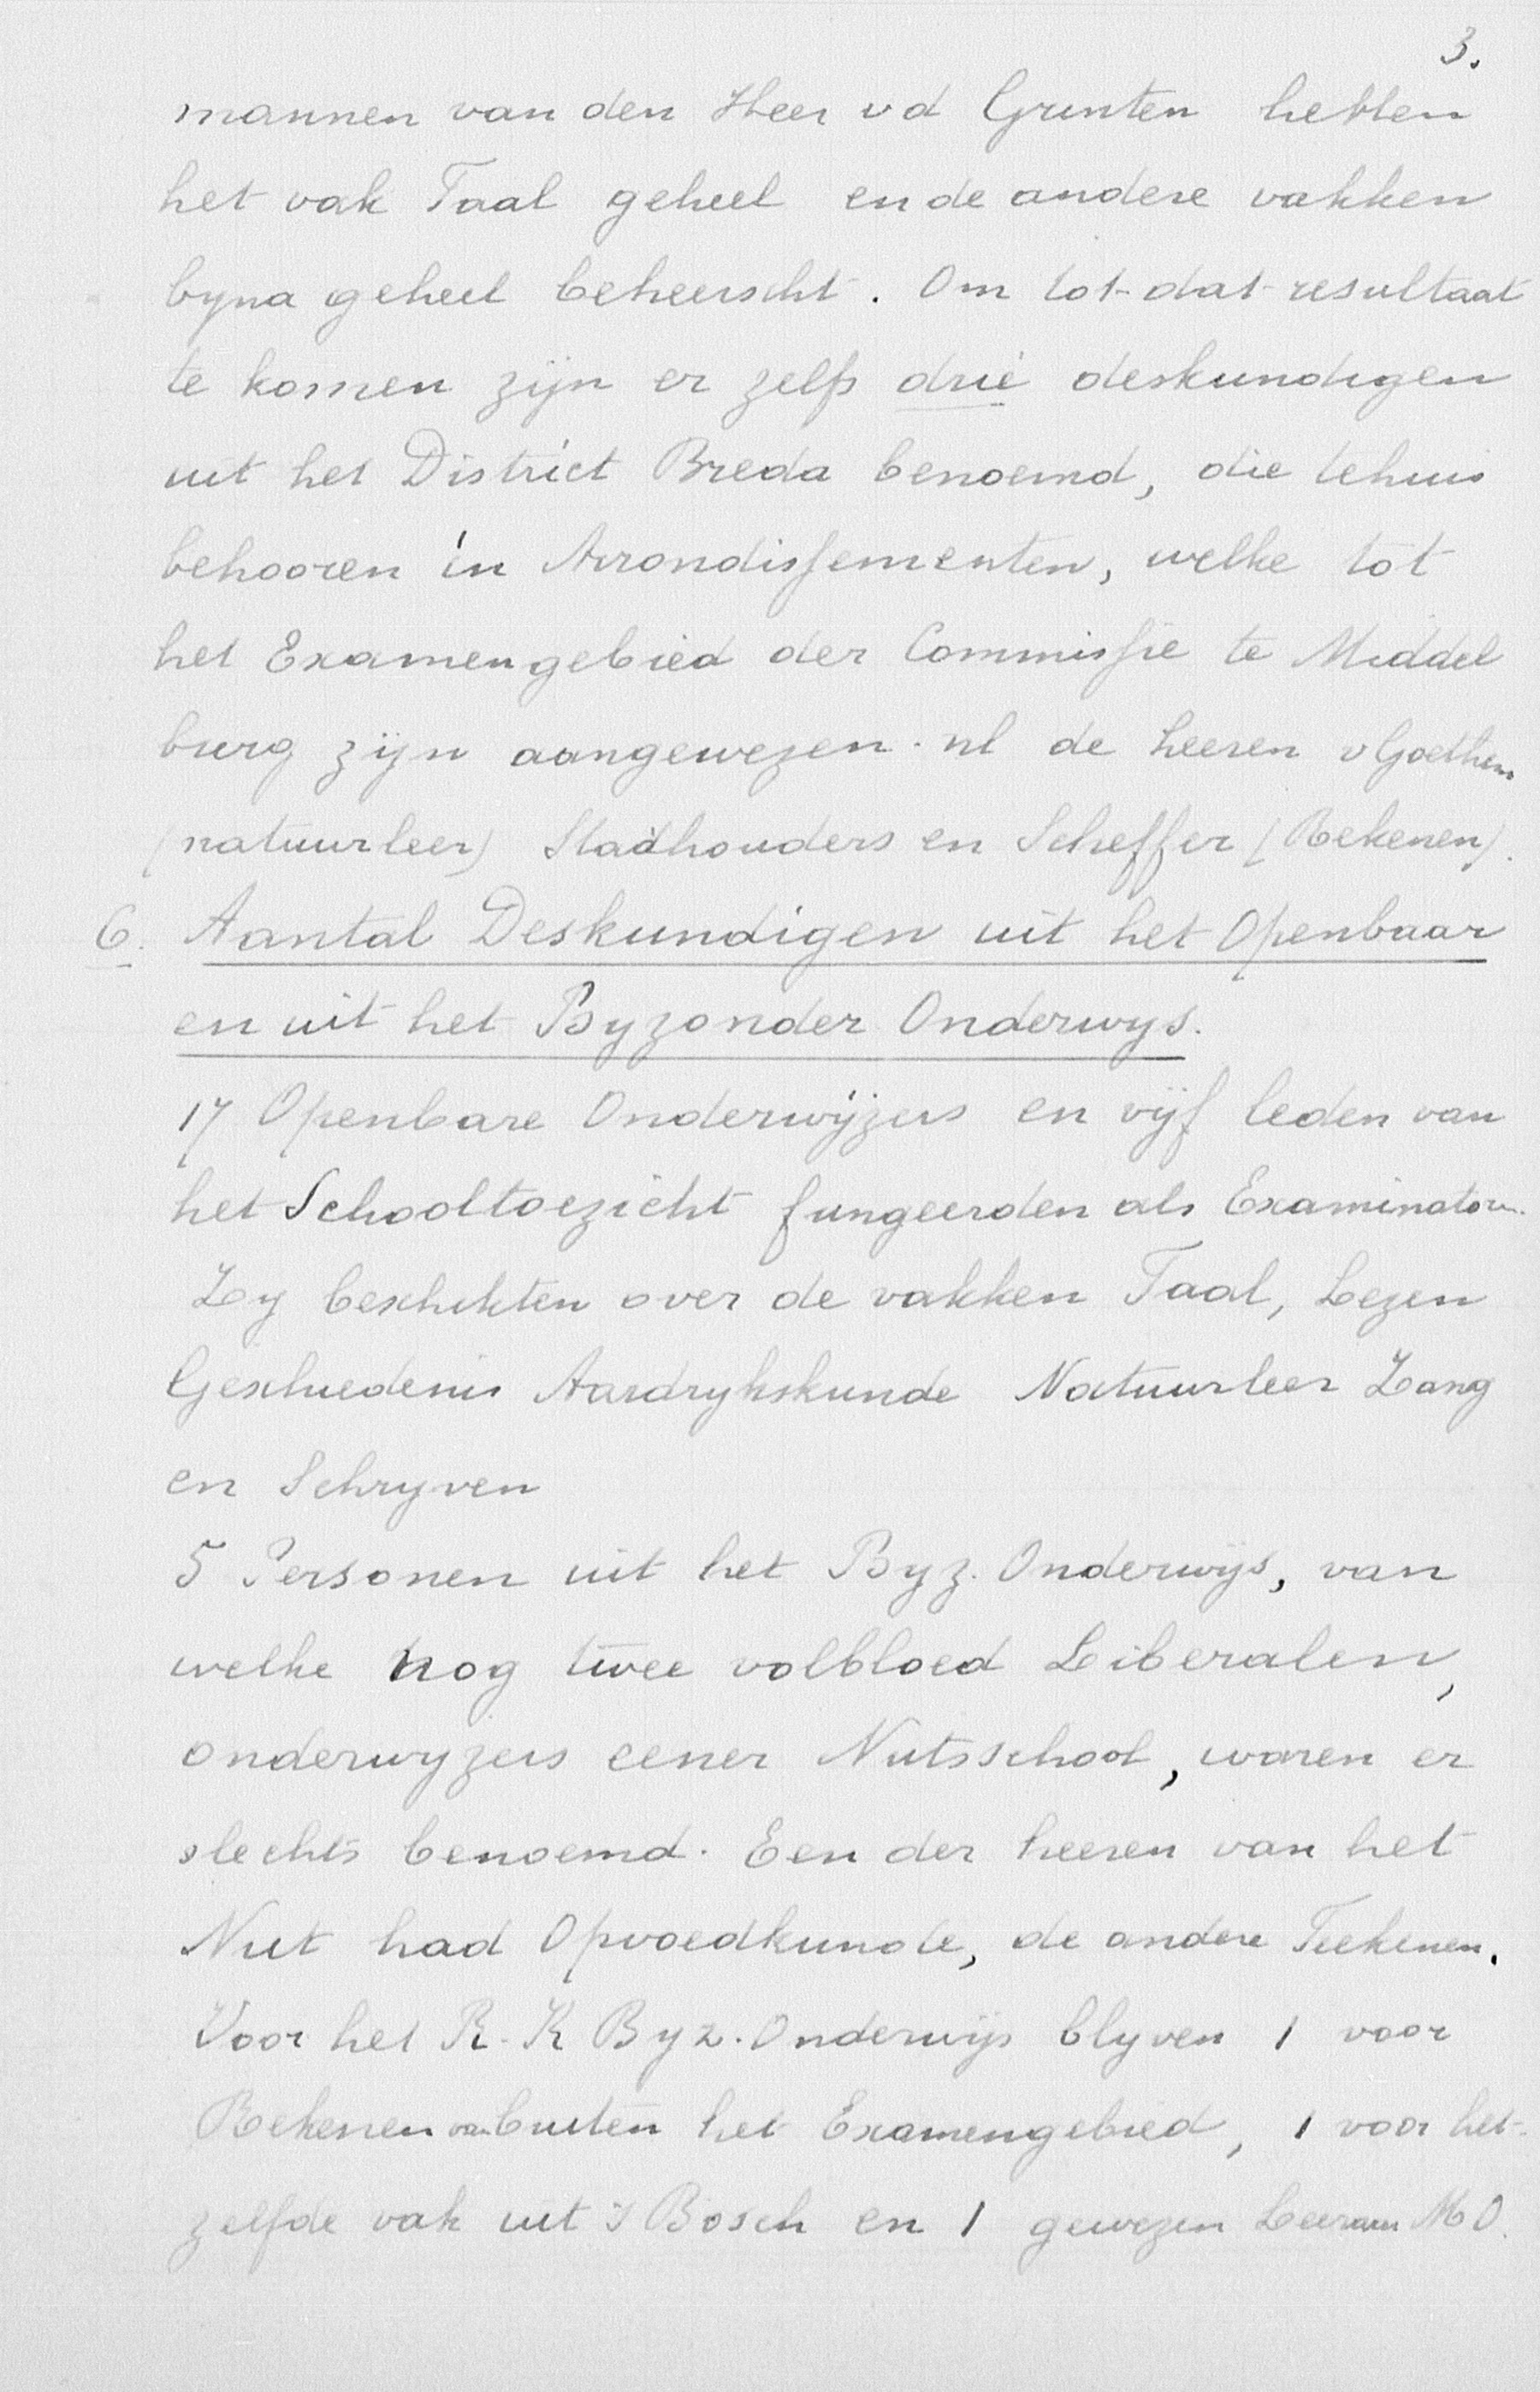 3.
mannen van den Heer vd Grinten hebben
het vak Taal geheel en de andere vakken
byna geheel beheerscht. Om tot dat resultaat
te komen zijn er zelfs drie deskundigen
uit het District Breda benoemd, die tehuis
behooren in Arrondissementen, welke tot
het Examengebied der Commissie te Middel
burg zijn aangewezen. nl de heeren v Goethem
(natuurleer) Stadhouders en Scheffer (Rekenen).
6. Aantal Deskundigen uit het Openbaar
en uit het Byzonder Onderwys.
17 Openbare Onderwijzers en vijf leden van
het Schooltoezicht fungeerden als Examinatoren.
Zy beschikten over de vakken Taal, Lezen
Geschiedenis Aardrykskunde Natuurleer Zang
en Schryven
5 Personen uit het Byz. Onderwijs, van
welke nog twee volbloed Liberalen,
onderwyzers eener Nutsschool, waren er
slechts benoemd. Een der heeren van het
Nut had Opvoedkunde, de andere Teekenen.
Voor het R. K Byz. Onderwijs blyven 1 voor
Rekenen van buiten het Examengebied, 1 voor het-
zelfde vak uit 's Bosch en 1 gewezen Leeraar M O.